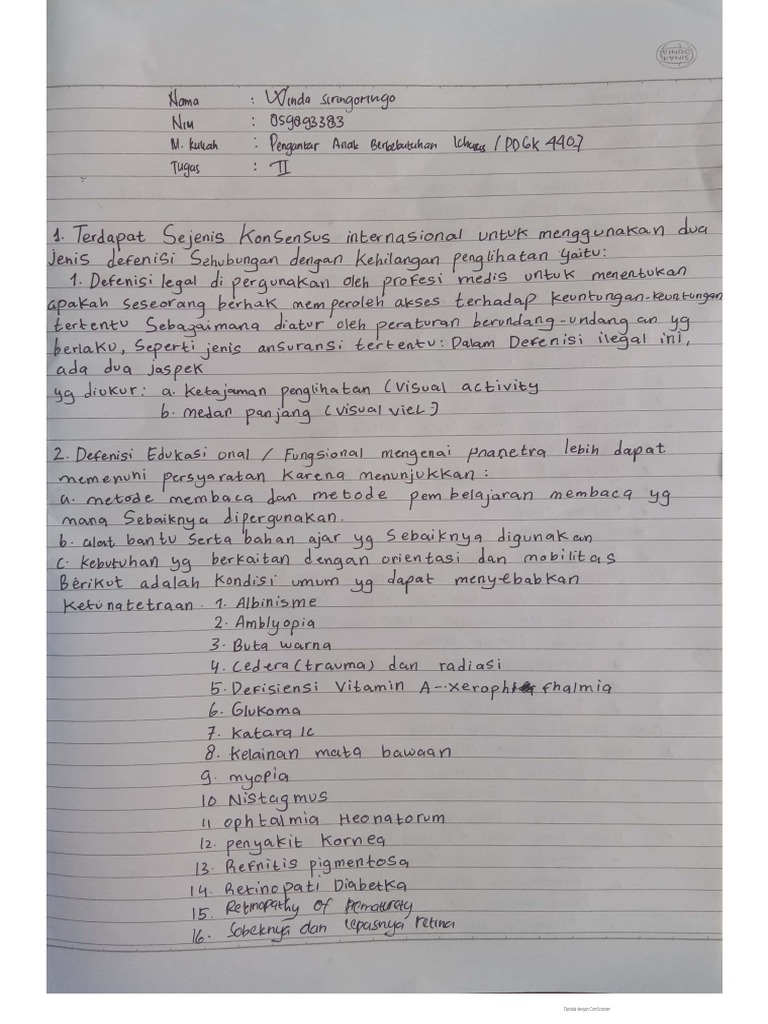 SINAR DUNIA
Nama : Winda Siringoringo
Nim : 059893383
M. Kuliah : Pengantar Anak Berbebutuhan Khusus / PDGK 4407
Tugas : II
1. Terdapat Sejenis Konsensus internasional untuk menggunakan dua
jenis defenisi Sehubungan dengan Kehilangan penglihatan yaitu:
1. Defenisi legal di pergunakan oleh profesi medis untuk menentukan
apakah seseorang berhak memperoleh akses terhadap keuntungan-keuntungan
tertentu Sebagaimana diatur oleh peraturan berundang-undang an yg
berlaku, Seperti jenis ansuransi tertentu: Dalam Defenisi ilegal ini,
ada dua jaspek
yg diukur: a. Ketajaman penglihatan (Visual activity
b. medan panjang (Visual viel)
2. Defenisi Edukasi onal / Fungsional mengenai lebih dapat
memenuni persyaratan Karena menunjukkan:
a. metode membaca dan metode pem belajaran membaca yg
mana Sebaiknya dipergunakan.
b. alat bantu Serta bahan ajar yg Sebaiknya digunakan
c. Kebutuhan yg berkaitan dengan orientasi dan mobilitas
Berikut adalah Kondisi umum yg dapat menyebabkan
Ketunatetraan. 1. Albinisme
2. Amblyopia
3. Buta warna
4. Cedera (trauma) dan radiasi
5. Defisiensi Vitamin A-xeroph fhalmia
6. Glukoma
7. Katarak
8. Kelainan mata bawaan
9. myopia
10 Nistagmus
11 ophtalmia Heonatorum
12. penyakit Kornea
13. Refnitis pigmentosa
14. Retinopati Diabetka
15. Retinopathy Of Prematurety
16. Sobeknya dan lepasnya retina
Dipindai dengan CamScanner